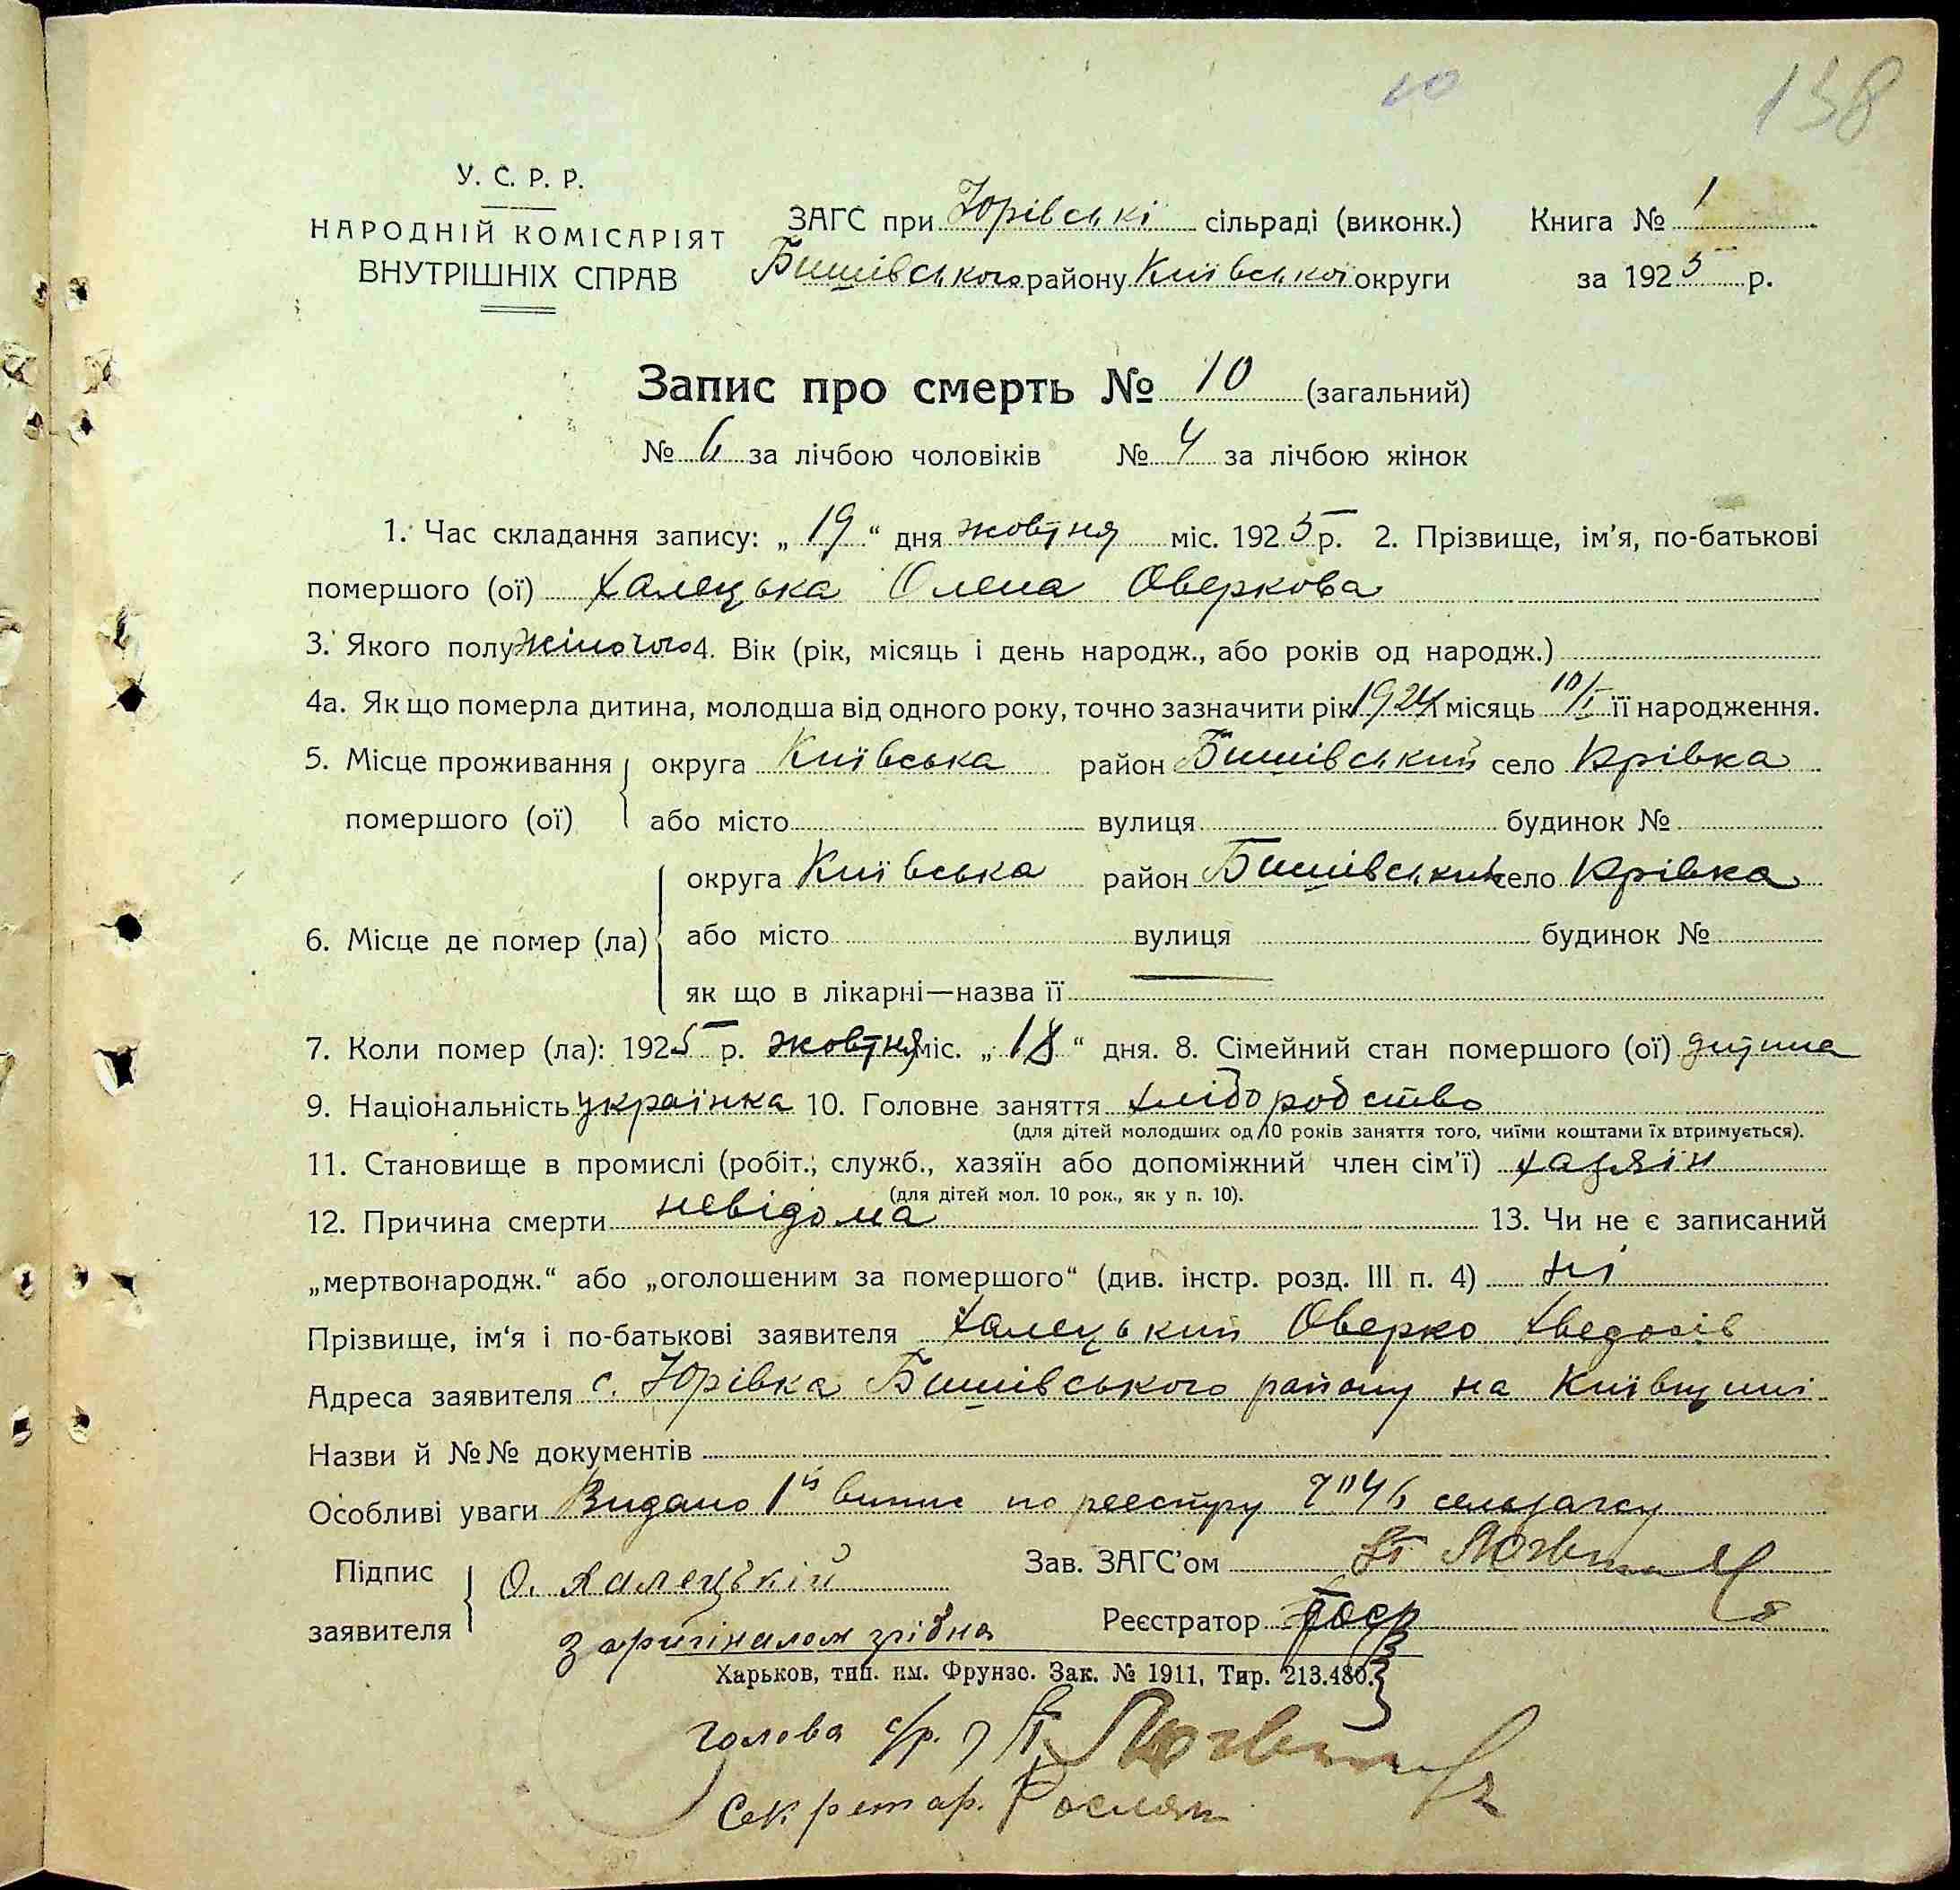 10
138
У. С. Р. Р.
НАРОДНІЙ КОМІСАРІЯТ
ВНУТРІШНІХ СПРАВ
ЗАГС при Юрівські сільраді (виконк.) Книга № 1
Бишівського району Київської округи за 1925 р.
Запис про смерть № 10 (загальний)
№ 6 за лічбою чоловіків № 4 за лічбою жінок
1. Час складання запису: „19“ дня жовтня міс. 1925 р. 2. Прізвище, ім'я, по-батькові
помершого (ої) Халецька Олена Оверкова
3. Якого полу жіночого 4. Вік (рік, місяць і день народж., або років од народж.)
4а. Як що померла дитина, молодша від одного року, точно зазначити рік 1924 місяць 10/I її народження.
5. Місце проживання округа Київська район Бишівський село Юрівка
помершого (ої) або місто вулиця будинок №
округа Київська район Бишівський село Юрівка
6. Місце де помер (ла) або місто вулиця будинок №
як що в лікарні—назва її
7. Коли помер (ла): 1925 р. жовтня міс. „18“ дня. 8. Сімейний стан помершого (ої) дитина
9. Національність українка 10. Головне заняття хліборобство
(для дітей молодших од 10 років заняття того, чиїми коштами їх втримується).
11. Становище в промислі (робіт.; служб., хазяїн або допоміжний член сім'ї) хазяїн
(для дітей мол. 10 рок., як у п. 10).
12. Причина смерти невідома 13. Чи не є записаний
„мертвонародж.“ або „оголошеним за помершого“ (див. інстр. розд. III п. 4) ні
Прізвище, ім'я і по-батькові заявителя Халецький Оверко
Адреса заявителя с. Юрівка Бишівського району на Київщині
Назви й №№ документів
Особливі уваги Видано 1й випис по реестру
Підпис О. Халецькій Зав. ЗАГС'ом
заявителя Реєстратор
З оригіналом згідно
Харьков, тип. им. Фрунзе. Зак. № 1911, Тир. 213.480.
Голова с/р.
Секретар.